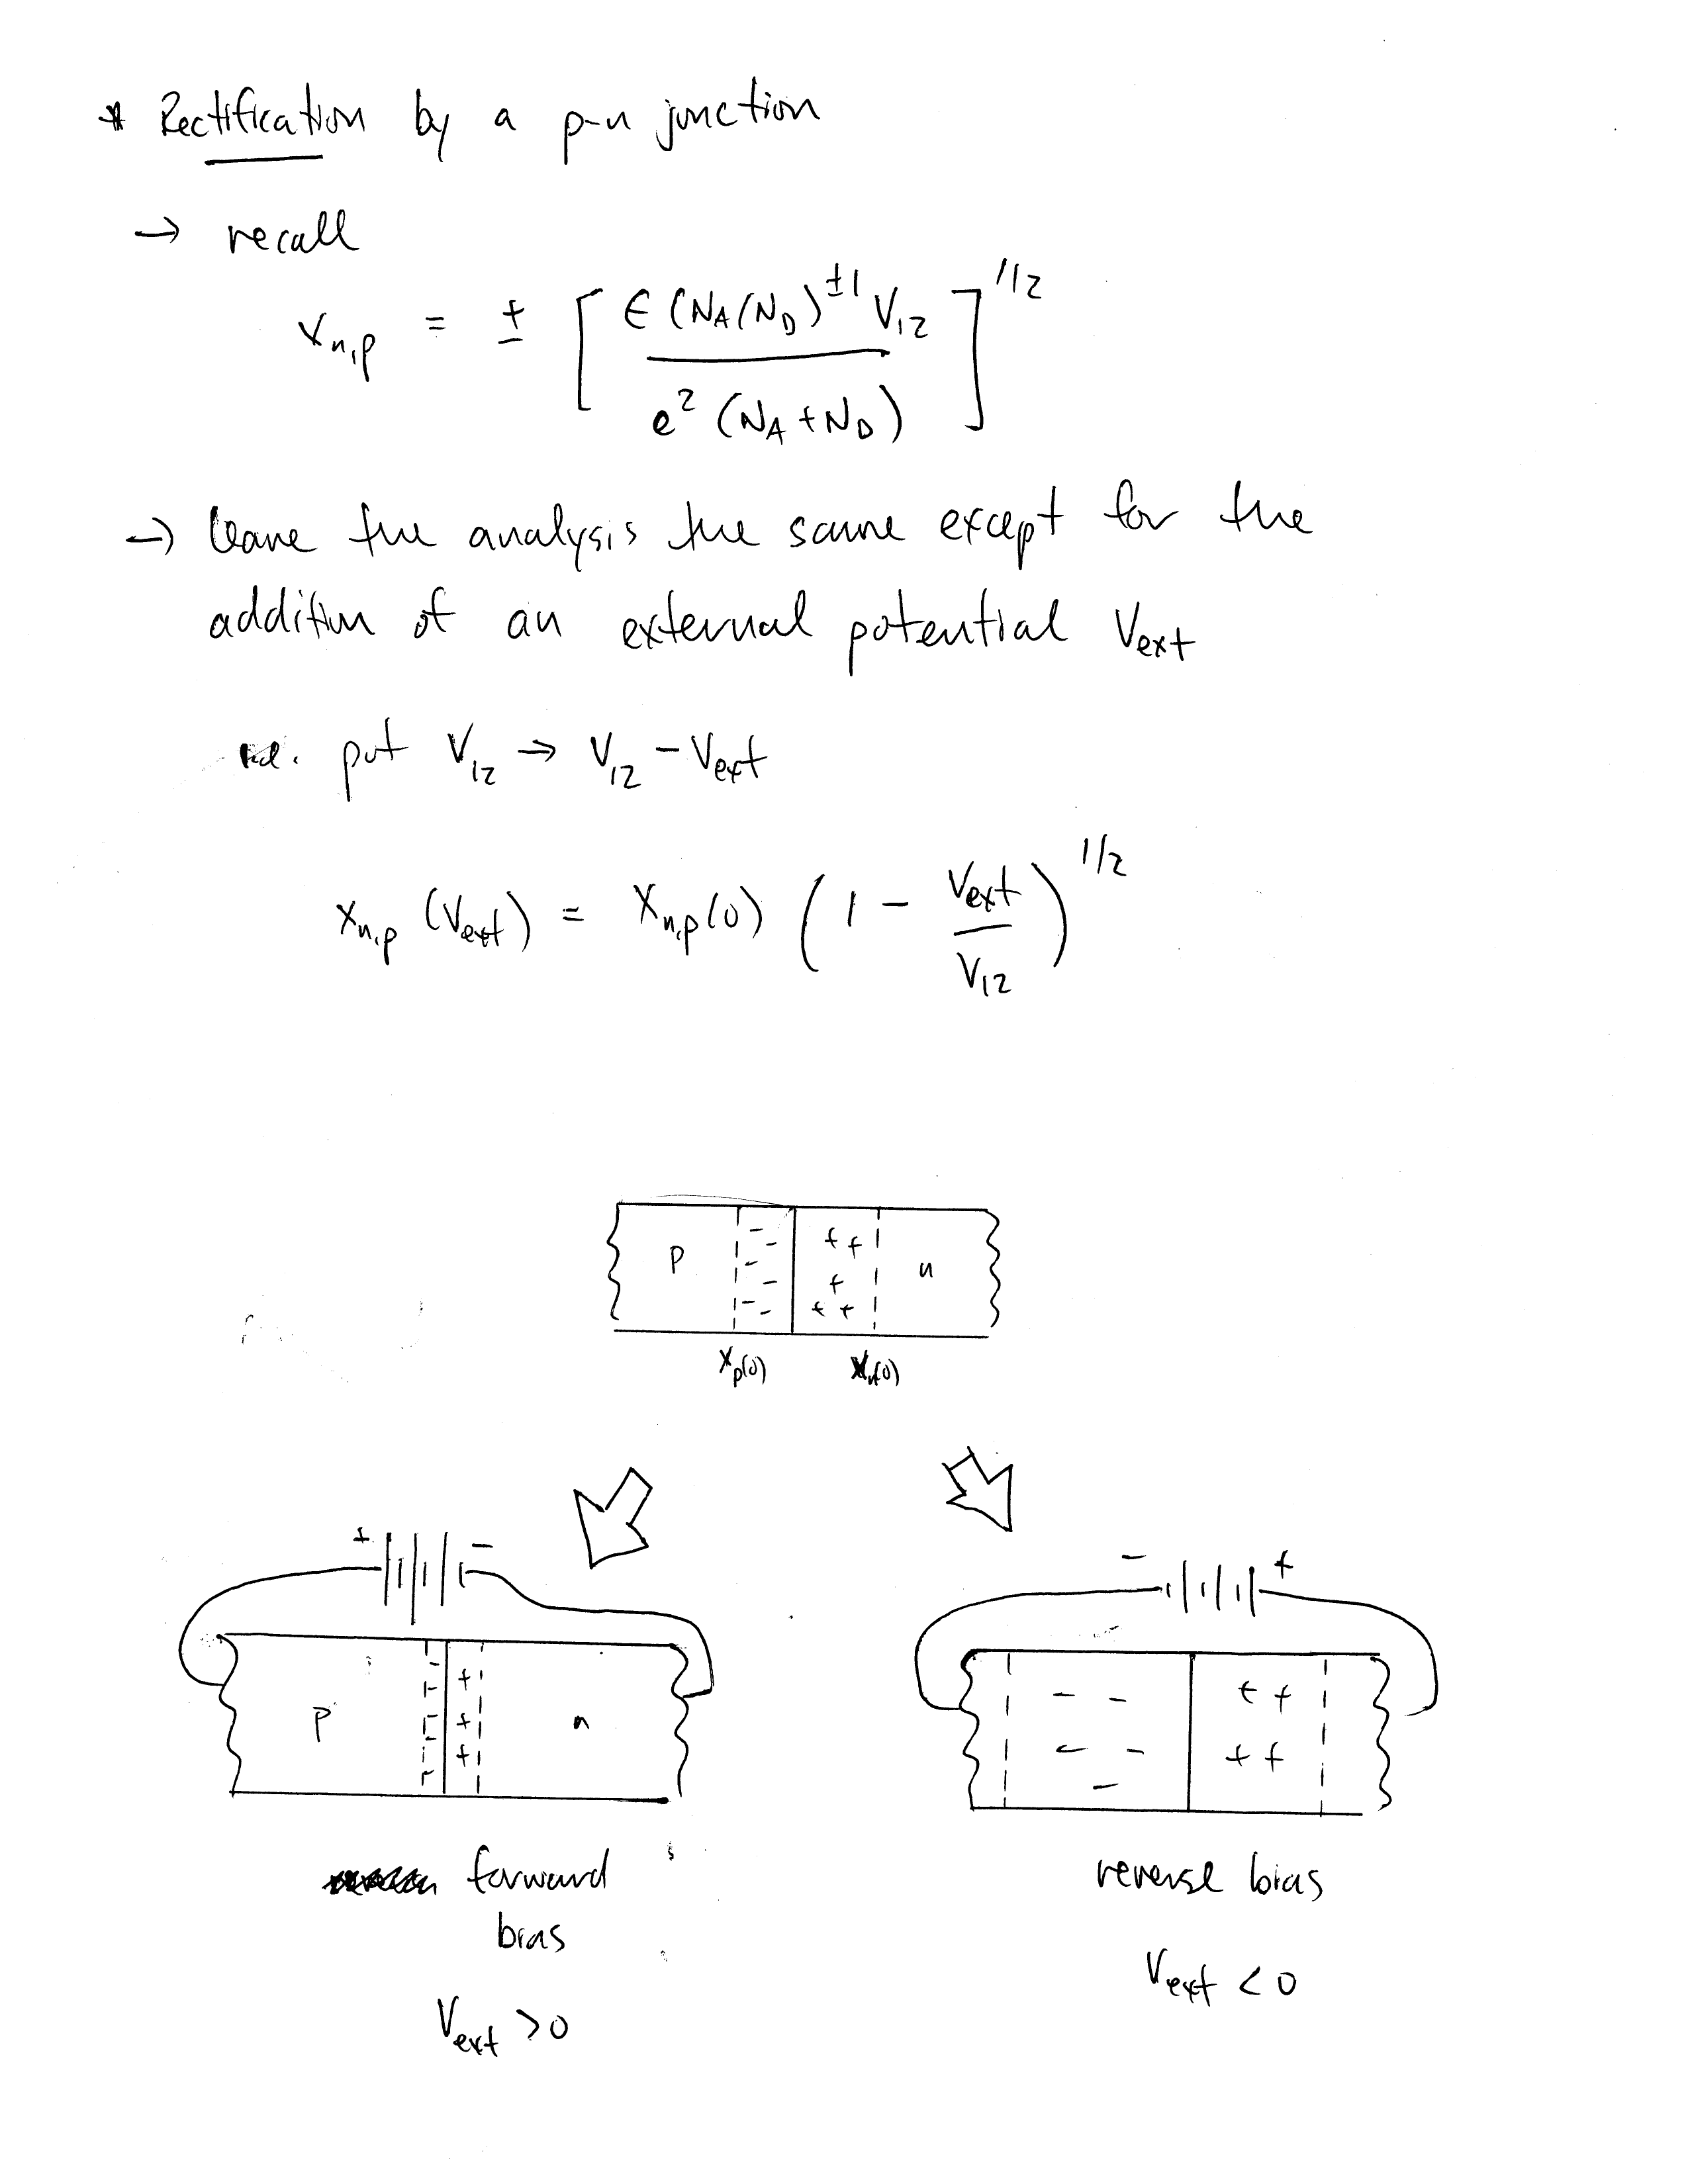 * Rectification by a p-n junction
→ recall
x_{n,p} = ± [ ϵ (N_A/N_D)^{±1} V_{12} / e² (N_A + N_D) ]^{1/2}
→ leave the analysis the same except for the
addition of an external potential V_ext
i.e. put V_{12} → V_{12} - V_ext
x_{n,p} (V_ext) = x_{n,p}(0) ( 1 - V_ext / V_{12} )^{1/2}
p - - - - - - + + + + + n
x_p(0) x_n(0)
+ -
- +
p - - - - + + + n
- - - - - + + + +
forward
bias
reverse bias
V_ext > 0
V_ext < 0